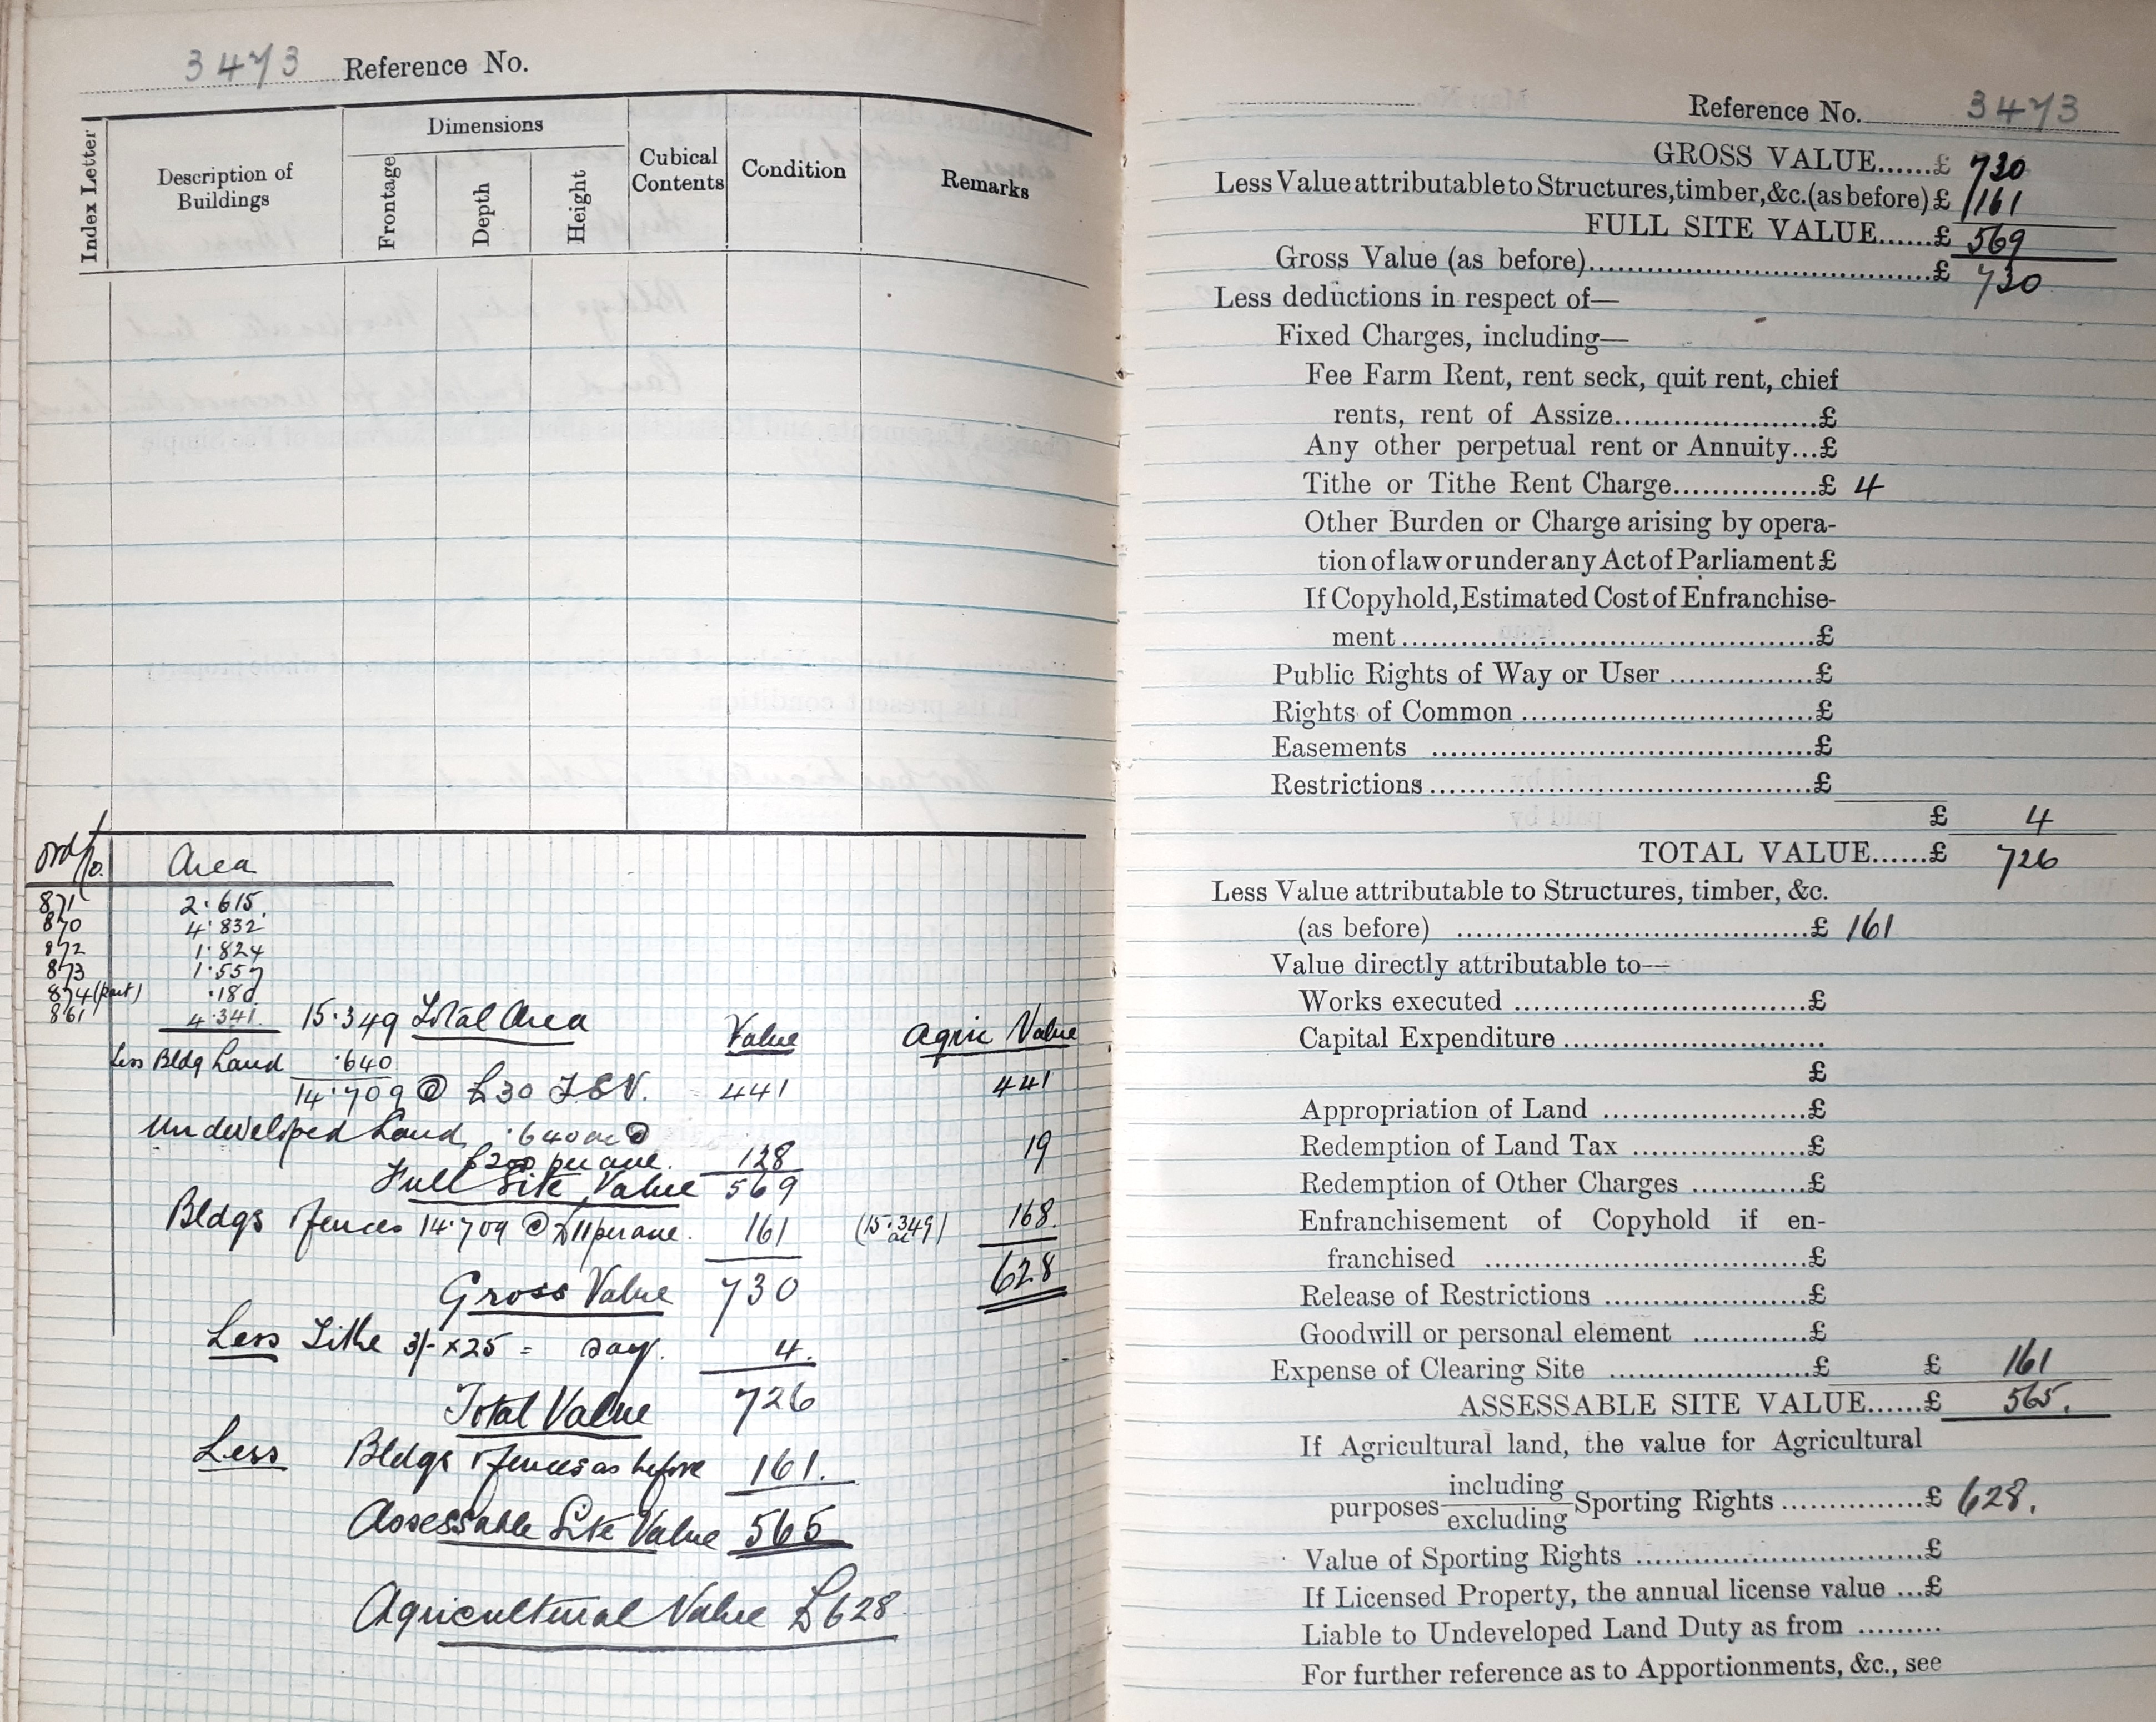 3473 Reference No.
Index Letter
Description of Buildings
Dimensions
Frontage
Depth
Height
Cubical Contents
Condition
Remarks
Ord No. Area
871 2.615
870 4.832
872 1.824
873 1.557
874 (part) .180
861 4.341 15.349 Total Area Value Agric Value
Less Bldg Land .640
14.709 @ £30 F.S.V. 441 441
Undeveloped Land .640 ac @
£200 per acre. 128 19
Full Site Value 569
Bldgs & fences 14.709 @ £11 per acre. 161 (15.349 ac) 168.
Gross Value 730 628
Less Tithe 3/- x 25 = say. 4.
Total Value 726
Less Bldgs & fences as before 161.
Assessable Site Value 565
Agricultural Value £628
Reference No. 3473
GROSS VALUE......£ 730
Less Value attributable to Structures, timber, &c. (as before) £ 161
FULL SITE VALUE......£ 569
Gross Value (as before)..........£ 730
Less deductions in respect of—
Fixed Charges, including—
Fee Farm Rent, rent seck, quit rent, chief
rents, rent of Assize..........£
Any other perpetual rent or Annuity...£
Tithe or Tithe Rent Charge..........£ 4
Other Burden or Charge arising by opera-
tion of law or under any Act of Parliament £
If Copyhold, Estimated Cost of Enfranchise-
ment..........£
Public Rights of Way or User ..........£
Rights of Common ..........£
Easements ..........£
Restrictions..........£
£ 4
TOTAL VALUE......£ 726
Less Value attributable to Structures, timber, &c.
(as before) ..........£ 161
Value directly attributable to—
Works executed ..........£
Capital Expenditure ..........
£
Appropriation of Land ..........£
Redemption of Land Tax ..........£
Redemption of Other Charges ..........£
Enfranchisement of Copyhold if en-
franchised ..........£
Release of Restrictions ..........£
Goodwill or personal element ..........£
Expense of Clearing Site ..........£ £ 161
ASSESSABLE SITE VALUE......£ 565.
If Agricultural land, the value for Agricultural
purposes including
excluding Sporting Rights ..........£ 628.
Value of Sporting Rights ..........£
If Licensed Property, the annual license value ...£
Liable to Undeveloped Land Duty as from .........
For further reference as to Apportionments, &c., see